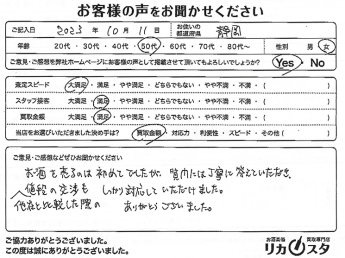 お客様の声をお聞かせください
ご記入日 2023年10月11日 お住いの都道府県 静岡
年齢 20代・30代・40代・50代・60代・70代・80代〜 性別 男・女
ご意見・ご感想を弊社ホームページにお客様の声として掲載させて頂いてもよろしいでしょうか? Yes・No
査定スピード 大満足・満足・やや満足・どちらでもない・やや不満・不満・( )
スタッフ接客 大満足・満足・やや満足・どちらでもない・やや不満・不満・( )
買取金額 大満足・満足・やや満足・どちらでもない・やや不満・不満・( )
当店をお選びいただきました決め手は? 買取金額・対応力・利便性・スピード・その他( )
ご意見・ご感想などぜひお聞かせください
お酒を売るのは初めてでしたが、質問には丁寧に答えいただき、
値段の交渉もしっかり対応していただけました。
他店と比較した際の
ありがとうございました。
ご協力ありがとうございました。
この度は誠にありがとうございました。
お酒高価買取専門店
リカスタ